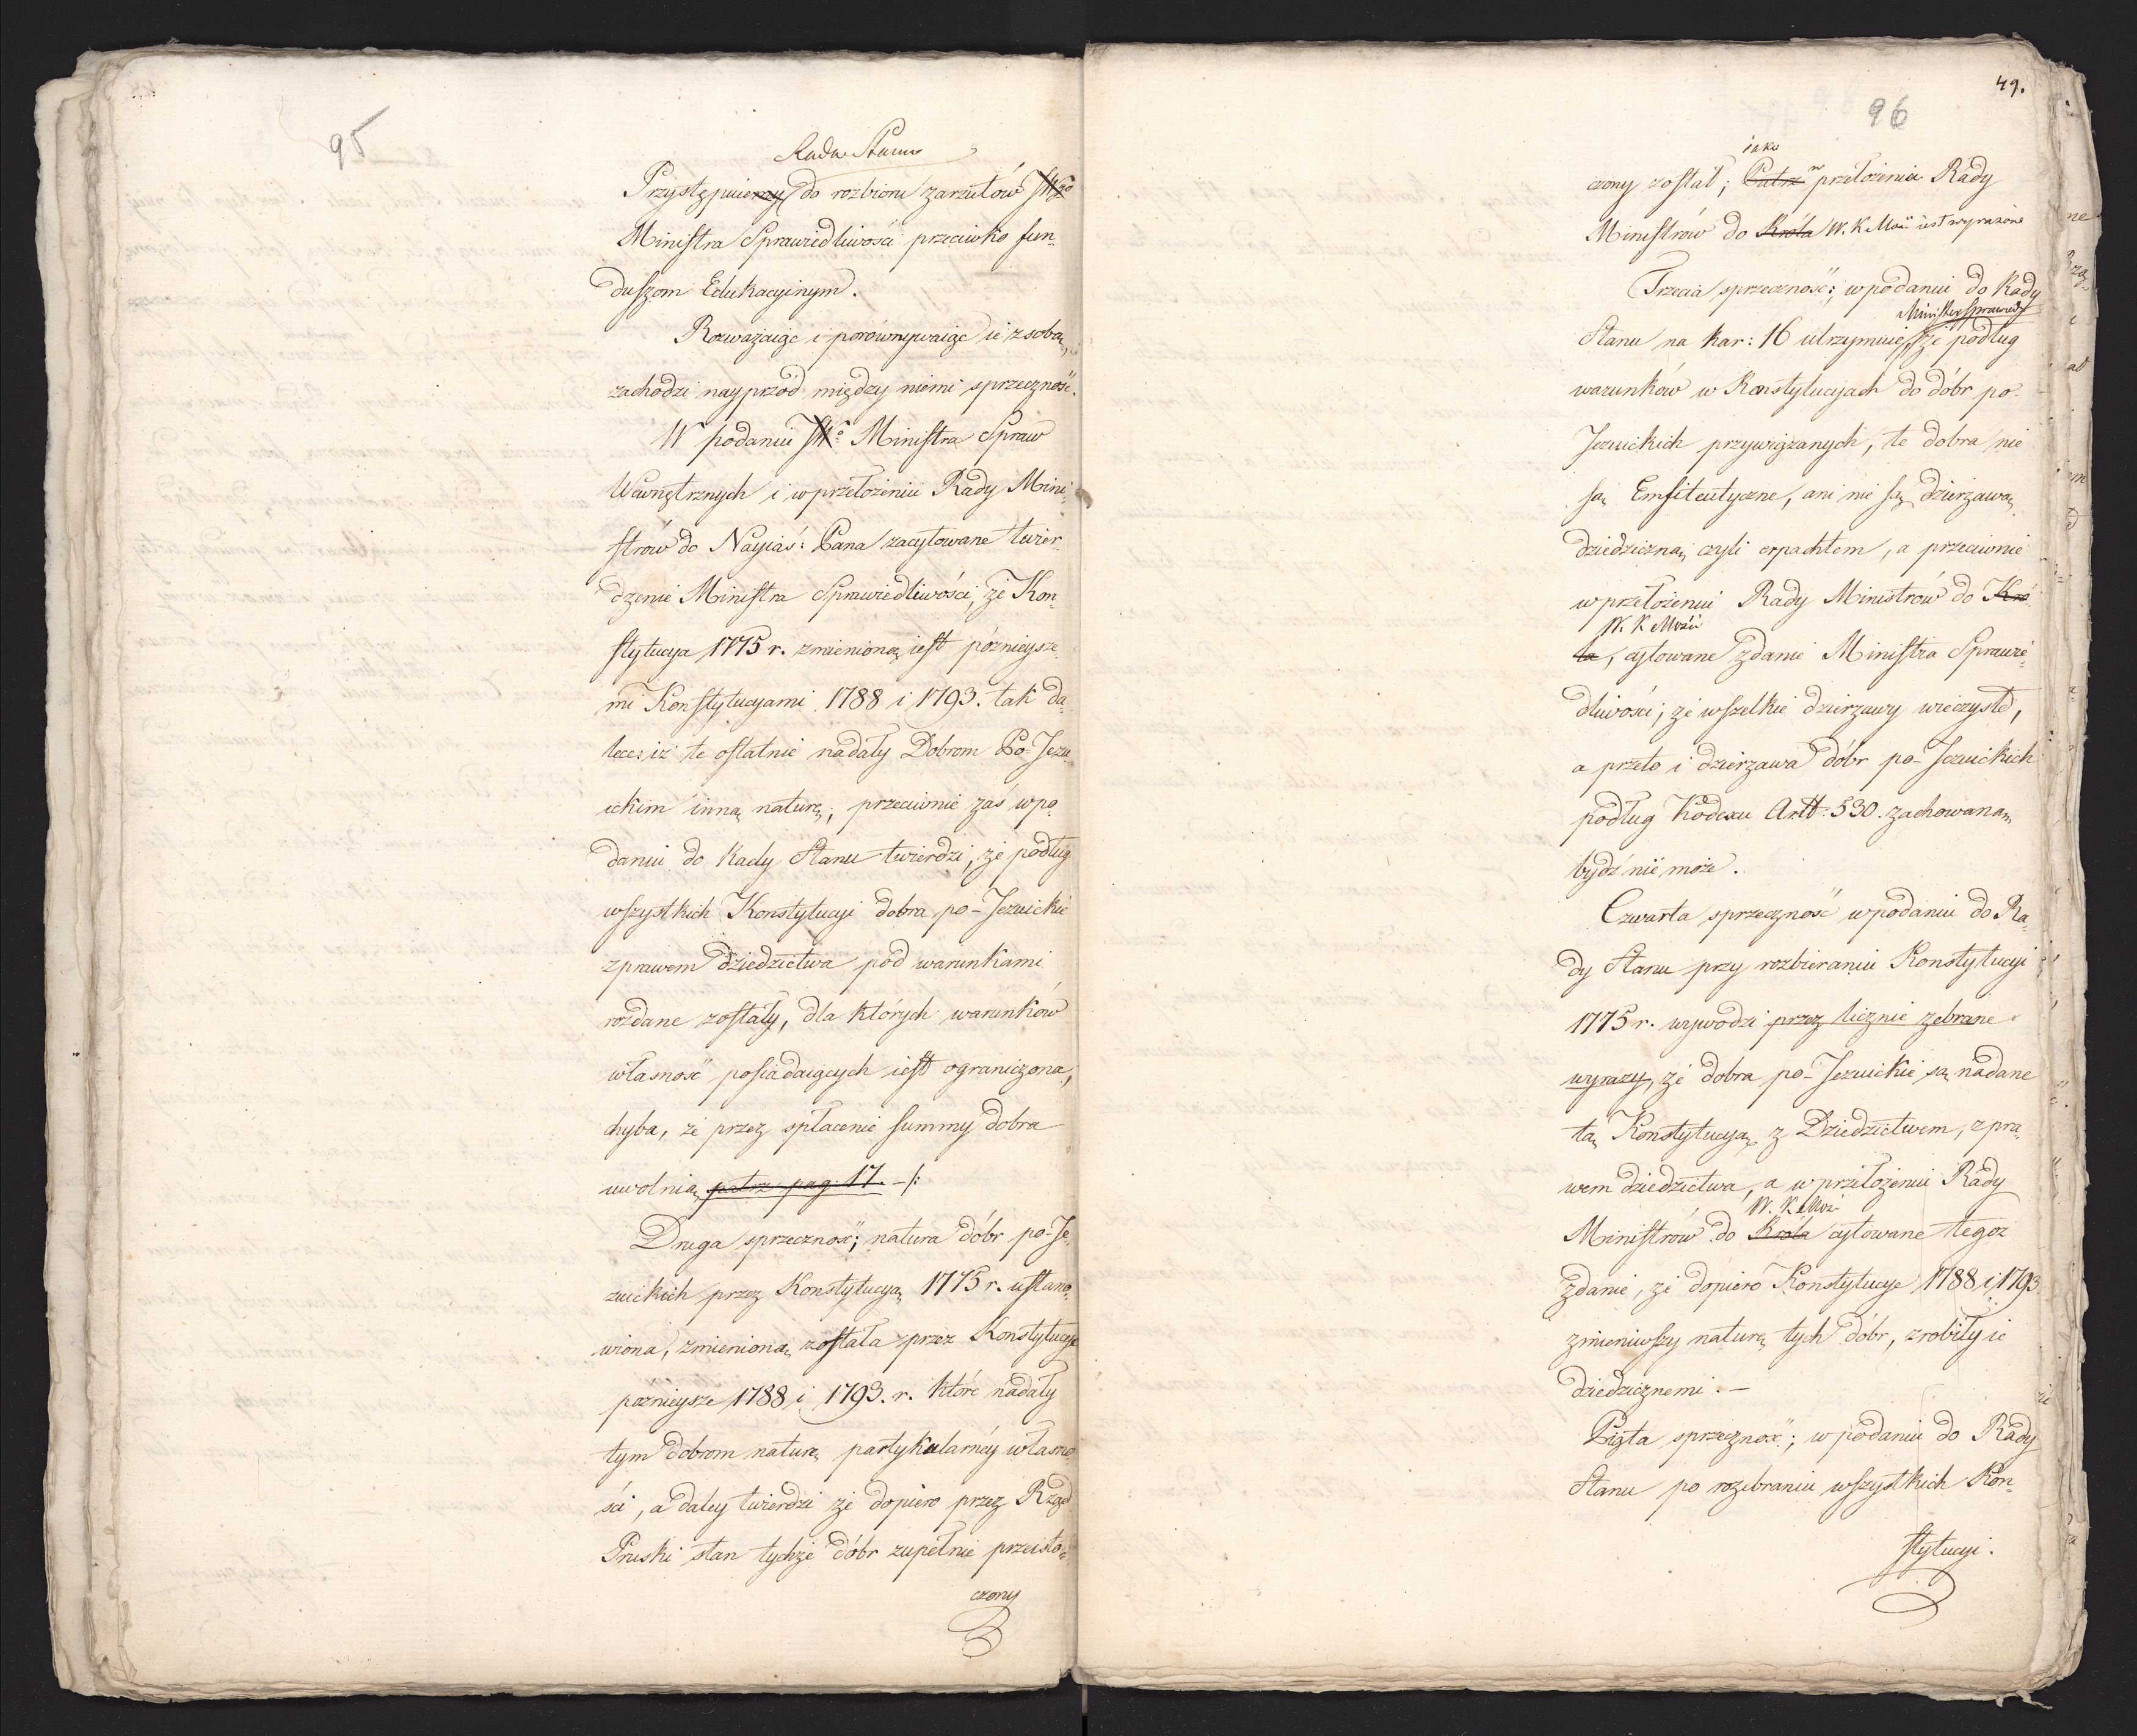 95
Rada Stanu
Przystępuiemy do rozbioru zarzutów JWgo
Ministra Sprawiedliwości przeciwko fun-
duszom Edukacyinym.
Rozważaiąc i porównywaiąc ie z sobą,
zachodzi nayprzód między niemi sprzeczność.
W podaniu JWo Ministra Spraw
Wewnętrznych i w przełożeniu Rady Mini-
strów do Nayiaś: Pana zacytowane twier-
dzenie Ministra Sprawiedliwości, że Kon-
stytucya 1775 r. zmienioną iest póznieysze-
mi Konstytucyami 1788 i 1793. tak da-
lece: iż te ostatnie nadały Dobrom Po-Jezu-
ickim inną naturę; przeciwnie zaś w po-
daniu do Rady Stanu twierdzi, że podług
wszystkich Konstytucyi dobra po-Jezuickie
z prawem dziedzictwa pod warunkami
rozdane zostały, dla których warunków
własność posiadaiących iest ograniczona,
chyba, że przez spłacenie summy dobra
uwolnią patrz pag: 17. -/:
Druga sprzeczność; natura dóbr po-Je-
zuickich przez Konstytucyą 1775 r. ustano-
wiona, zmienioną została przez Konstytucye
póznieysze 1788 i 1793. r. które nadały
tym dobrom naturę partykularnéy własno-
ści, a daley twierdzi że dopiero przez Rząd
Pruski stan tychże dóbr zupełnie przeisto-
czony
49.
96
iako
czony został; Patrz w przełożeniu Rady
Ministrów do Króla W. K. Mości iest wyrażone
Trzecia sprzeczność; w podaniu do Rady
Minister Sprawied
Stanu na kar: 16 utrzymuie, że podług
warunków w Konstytucyach do dóbr po-
Jezuickich przywiązanych, te dobra nie
są Emfiteutyczne, ani nie są dzierżawą
dziedziczną czyli erpachtem, a przeciwnie
w przełożeniu Rady Ministrów do Kró-
W. K. Mości
la, cytowane zdanie Ministra Sprawie-
dliwości, że wszelkie dzierżawy wieczyste,
a przeto i dzierżawa dóbr po-Jezuickich
podług Kodexu Artt: 530. zachowaną
bydź nie może.
Czwarta sprzeczność w podaniu do Ra-
dy Stanu przy rozbieraniu Konstytucyi
1775 r. wywodzi przez licznie zebrane
wyrazy, że dobra po-Jezuickie są nadane
tą Konstytucyą z Dziedzictwem, z pra-
wem dziedzictwa, a w przełożeniu Rady
W. K. Moś
Ministrów do Króla cytowane tegoz
zdanie, że dopiero Konstytucye 1788 i 1793
zmieniwszy naturę tych dóbr, zrobiły ie
dziedzicznemi. -
Piąta sprzeczność; w podaniu do Rady
Stanu po rozebraniu wszystkich Kon-
stytucyi.